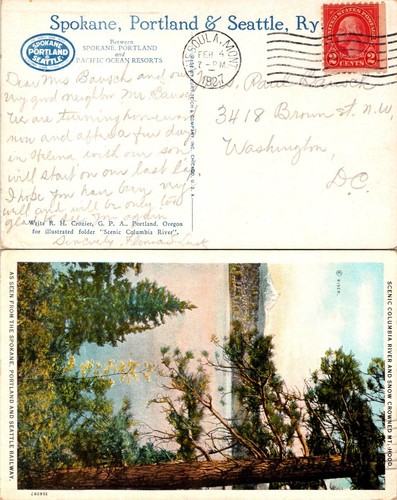 Spokane, Portland & Seattle, Ry.
SPOKANE
PORTLAND
SEATTLE
Between
SPOKANE, PORTLAND
and
PACIFIC OCEAN RESORTS
MISSOULA, MONT.
FEB 4
7 - PM
1927
2 CENTS 2
Dear Mrs Bausch and our
very good neighbor Mr Bausch
We are turning homeward
now and after a few days
in Helena with our son
will start on our last lap
I hope you have been very
well and will be only too
glad to see you again
Sincerely
Mrs. Paul
3418 Brown St. N.W.
Washington,
D.C.
Write R. H. Crozier, G. P. A., Portland, Oregon
for illustrated folder "Scenic Columbia River".
AS SEEN FROM THE SPOKANE, PORTLAND AND SEATTLE RAILWAY.
© KISER.
SCENIC COLUMBIA RIVER AND SNOW CROWNED MT. HOOD.